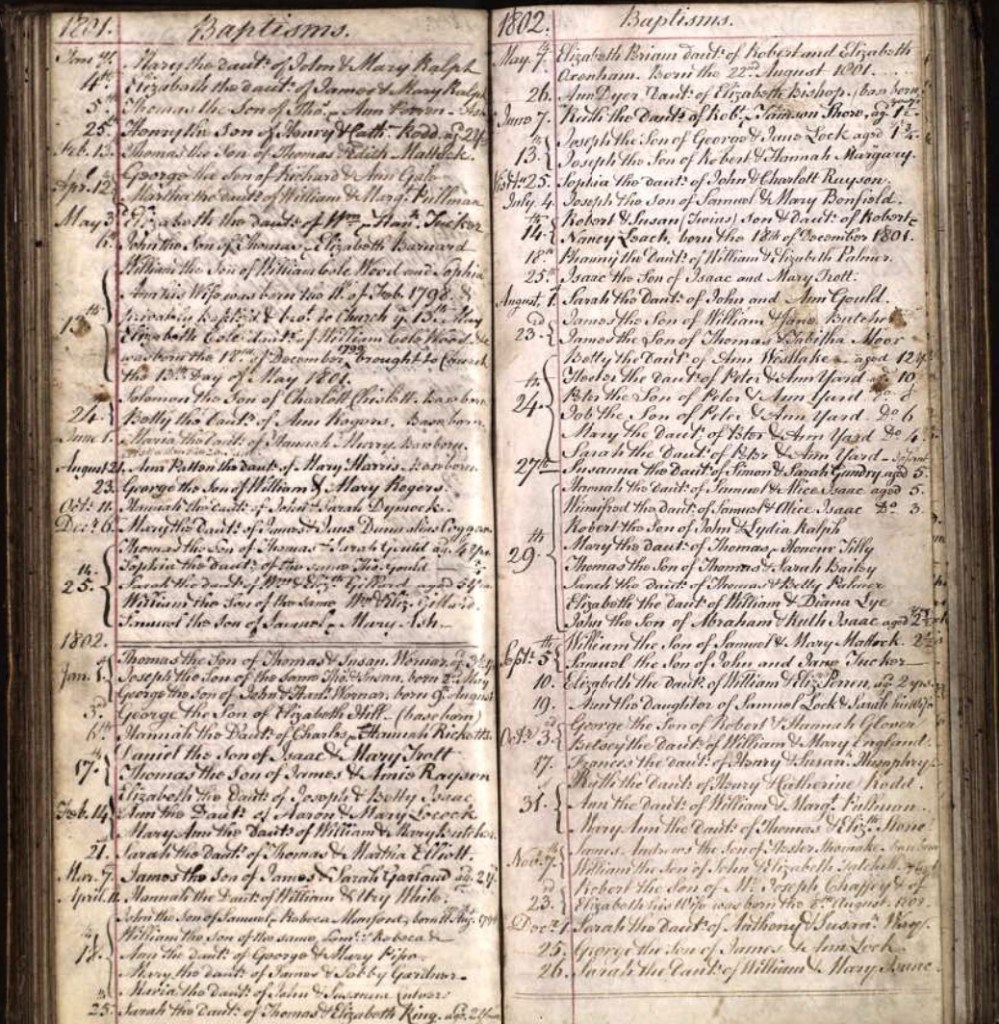 1801. Baptisms.
Mary the daut.r of John & Mary Ralph
4th Elizabeth the daut.r of James & Mary Ralph
Thomas the Son of Tho.s Ann
25 Henry the Son of Henry & Cath. Rodd
Feb. 13 Thomas the Son of Thomas Edith Mattock
George the Son of Richard & Ann Gale
Apr. 12 Martha the daut.r of William & Marg.t Pullman
May 3 Elizabeth the daut.r of Wm Han.h Tucker
6. John the Son of Thomas Elizabeth Barnard
William the Son of William Cole Wood and Sophia
his Wife was born the 11 of Feb. 1798 &
privately Baptiz'd & bro.t to Church y.e 13th May
Elizabeth Cole daut.r of William Cole Wood &c
was born the 18th of December 1799 brought to Church
the 13th Day of May 1801.
Solomon the Son of Charlott
24. Betty the Daut.r of Ann Rogers. Baseborn
June Maria the Daut.r of Hannah Merry Baseborn
August 21. Ann the daut.r of Mary Harris Baseborn
23. George the Son of William & Mary Rogers.
Oct.r 11. Hannah the daut.r of John & Sarah Dymock.
Dec.r 6. Mary the Daut.r of James & Jane
Thomas the Son of Thomas & Sarah Gould
Sophia the daut.r of the same Tho.s Gould
25. Sarah the daut.r of Wm & Eliz.th Gillard aged
William the Son of the same Wm & Eliz. Gillard.
Samuel the Son of Samuel & Mary Ash.
1802.
Thomas the Son of Thomas & Susan.
Jan. 1. Joseph the Son of the same Tho.s & Susan. born
George the Son of John & born 9th August
3d George the Son of Elizabeth Hill (baseborn)
6th Hannah the Daut.r of Charles & Hannah Ricketts
Daniel the Son of Isaac & Mary Trott
17. Thomas the Son of James & Amie Rayson
Elizabeth the Daut.r of Joseph & Betty Isaac
Feb. 14 Ann the Daut.r of Aaron & Mary Locock
Mary Ann the Daut.r of William & Mary Butcher
21. Sarah the Daut.r of Thomas & Martha Elliott.
Mar. 7. James the Son of James & Sarah Garland
April 11. Hannah the Daut.r of William & White.
John the Son of Samuel Rebeca born 11 Aug. 1799
William the Son of the same Sam.l & Rebeca
18. Ann the daut.r of George & Mary Pipe
Mary the daut.r of James & Gardner
Maria the daut.r of John & Susanna
25. Sarah the Daut.r of Thomas & Elizabeth King.
1802. Baptisms.
May 7. Elizabeth Briam daut.r of Robert and Elizabeth
Oxenham. Born the 22nd August 1801.
26. Ann Dyer Daut.r of Elizabeth Bishop, base born
June 7. Ruth the Daut.r of Rob.t & Tamson
Joseph the Son of George & Jane Lock aged
13. Joseph the Son of Robert & Hannah Margary
25. Sophia the daut.r of John & Charlott Rayson.
July 4. Joseph the Son of Samuel & Mary Bonfield.
Robert & Susan (Twins) Son & Daut.r of Robert &
14. Nancy Loach, born the 18th of December 1801.
18th the Daut.r of William & Elizabeth Palmer.
25. Isaac the Son of Isaac and Mary Trott.
August 1. Sarah the Daut.r of John and Ann Gould.
James the Son of William & Jane Butcher
23. James the Son of Thomas & Tabitha Moor
Betty the Daut.r of Ann Westlake aged 12
Hester the daut.r of Peter & Ann Yard ag. 10
24. Peter the Son of Peter & Ann Yard D.o 8
Job the Son of Peter & Ann Yard D.o 6
Mary the Daut.r of Peter & Ann Yard D.o 4
Sarah the Daut.r of Peter & Ann Yard
27th Susanna the Daut.r of Simon & Sarah Gundry aged 5.
Hannah the Daut.r of Samuel & Alice Isaac aged 5.
Winnifred the Daut.r of Samuel & Alice Isaac D.o 3.
Robert the Son of John & Lydia Ralph
29. Mary the daut.r of Thomas & Honour Tilly
Thomas the Son of Thomas & Sarah Bailey
Sarah the daut.r of Thomas & Betty Palmer
Elizabeth the daut.r of William & Diana Lye
John the Son of Abraham & Ruth Isaac aged
William the Son of Samuel & Mary Mattock
Sept. 5 Samuel the Son of John and Jane Tucker
10. Elizabeth the daut.r of William & Eliz. Perren, ag. 2 yrs
19. Ann the Daughter of Samuel Lock & Sarah his Wife
George the Son of Robert & Hannah Glover
Oct.r 3. Betsey the Daut.r of William & Mary England.
17. Frances the daut.r of Henry & Susan. Humphry
Ruth the Daut.r of Henry & Catherine Rodd
31. Ann the Daut.r of William & Marg.t Pullman.
Mary Ann the Daut.r of Thomas & Eliz.th Stone
Nov. 7. James Andrews the Son of Hester
William the Son of John & Elizabeth Satchell
Robert the Son of Mr. Joseph Chaffey & of
23. Elizabeth his Wife was born the August 1802.
Dec.r 1. Sarah the Daut.r of Anthony & Susan.h
25. George the Son of James & Ann Lock.
26. Sarah the Daut.r of William & Mary Isaac